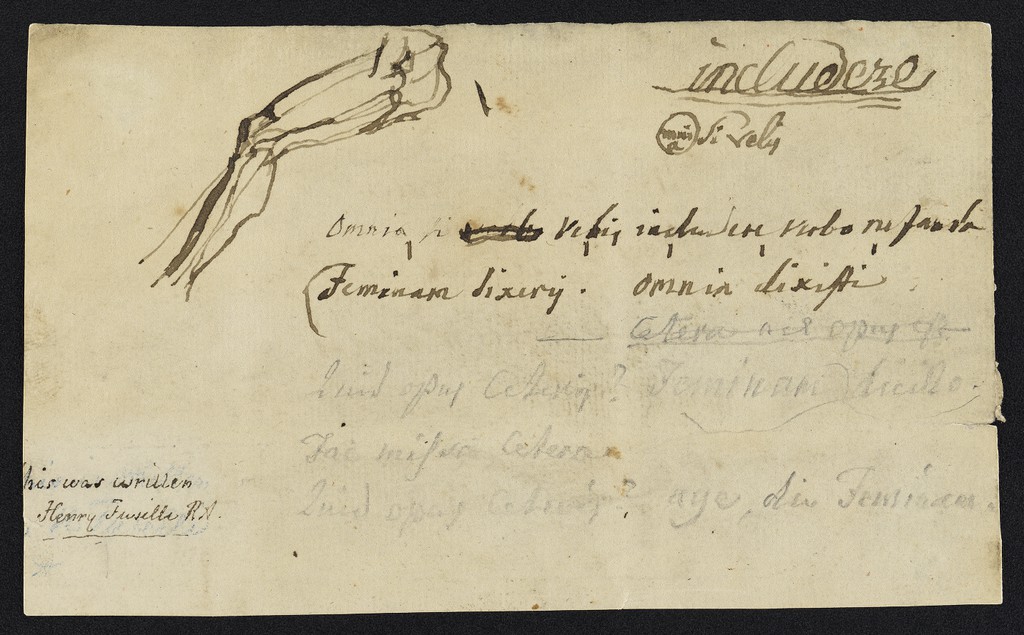 includere
omnia si velis
Omnia, si velis includere verbo nefanda
Feminam dixeris. omnia dixisti
Cetera nil opus est
Quid opus Ceteris? Feminam dicito.
Fac missa Cetera
Quid opus Ceteris? age, dic Feminam.
his was written
Henry Fuselli RA.